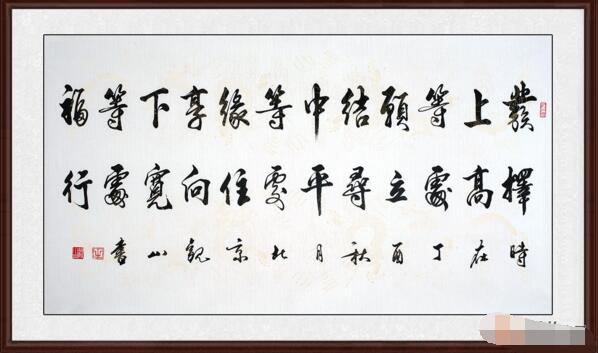 發上等願結中等緣享下等福
擇高處立尋平處住向寬處行
時在丁酉秋月北京山書